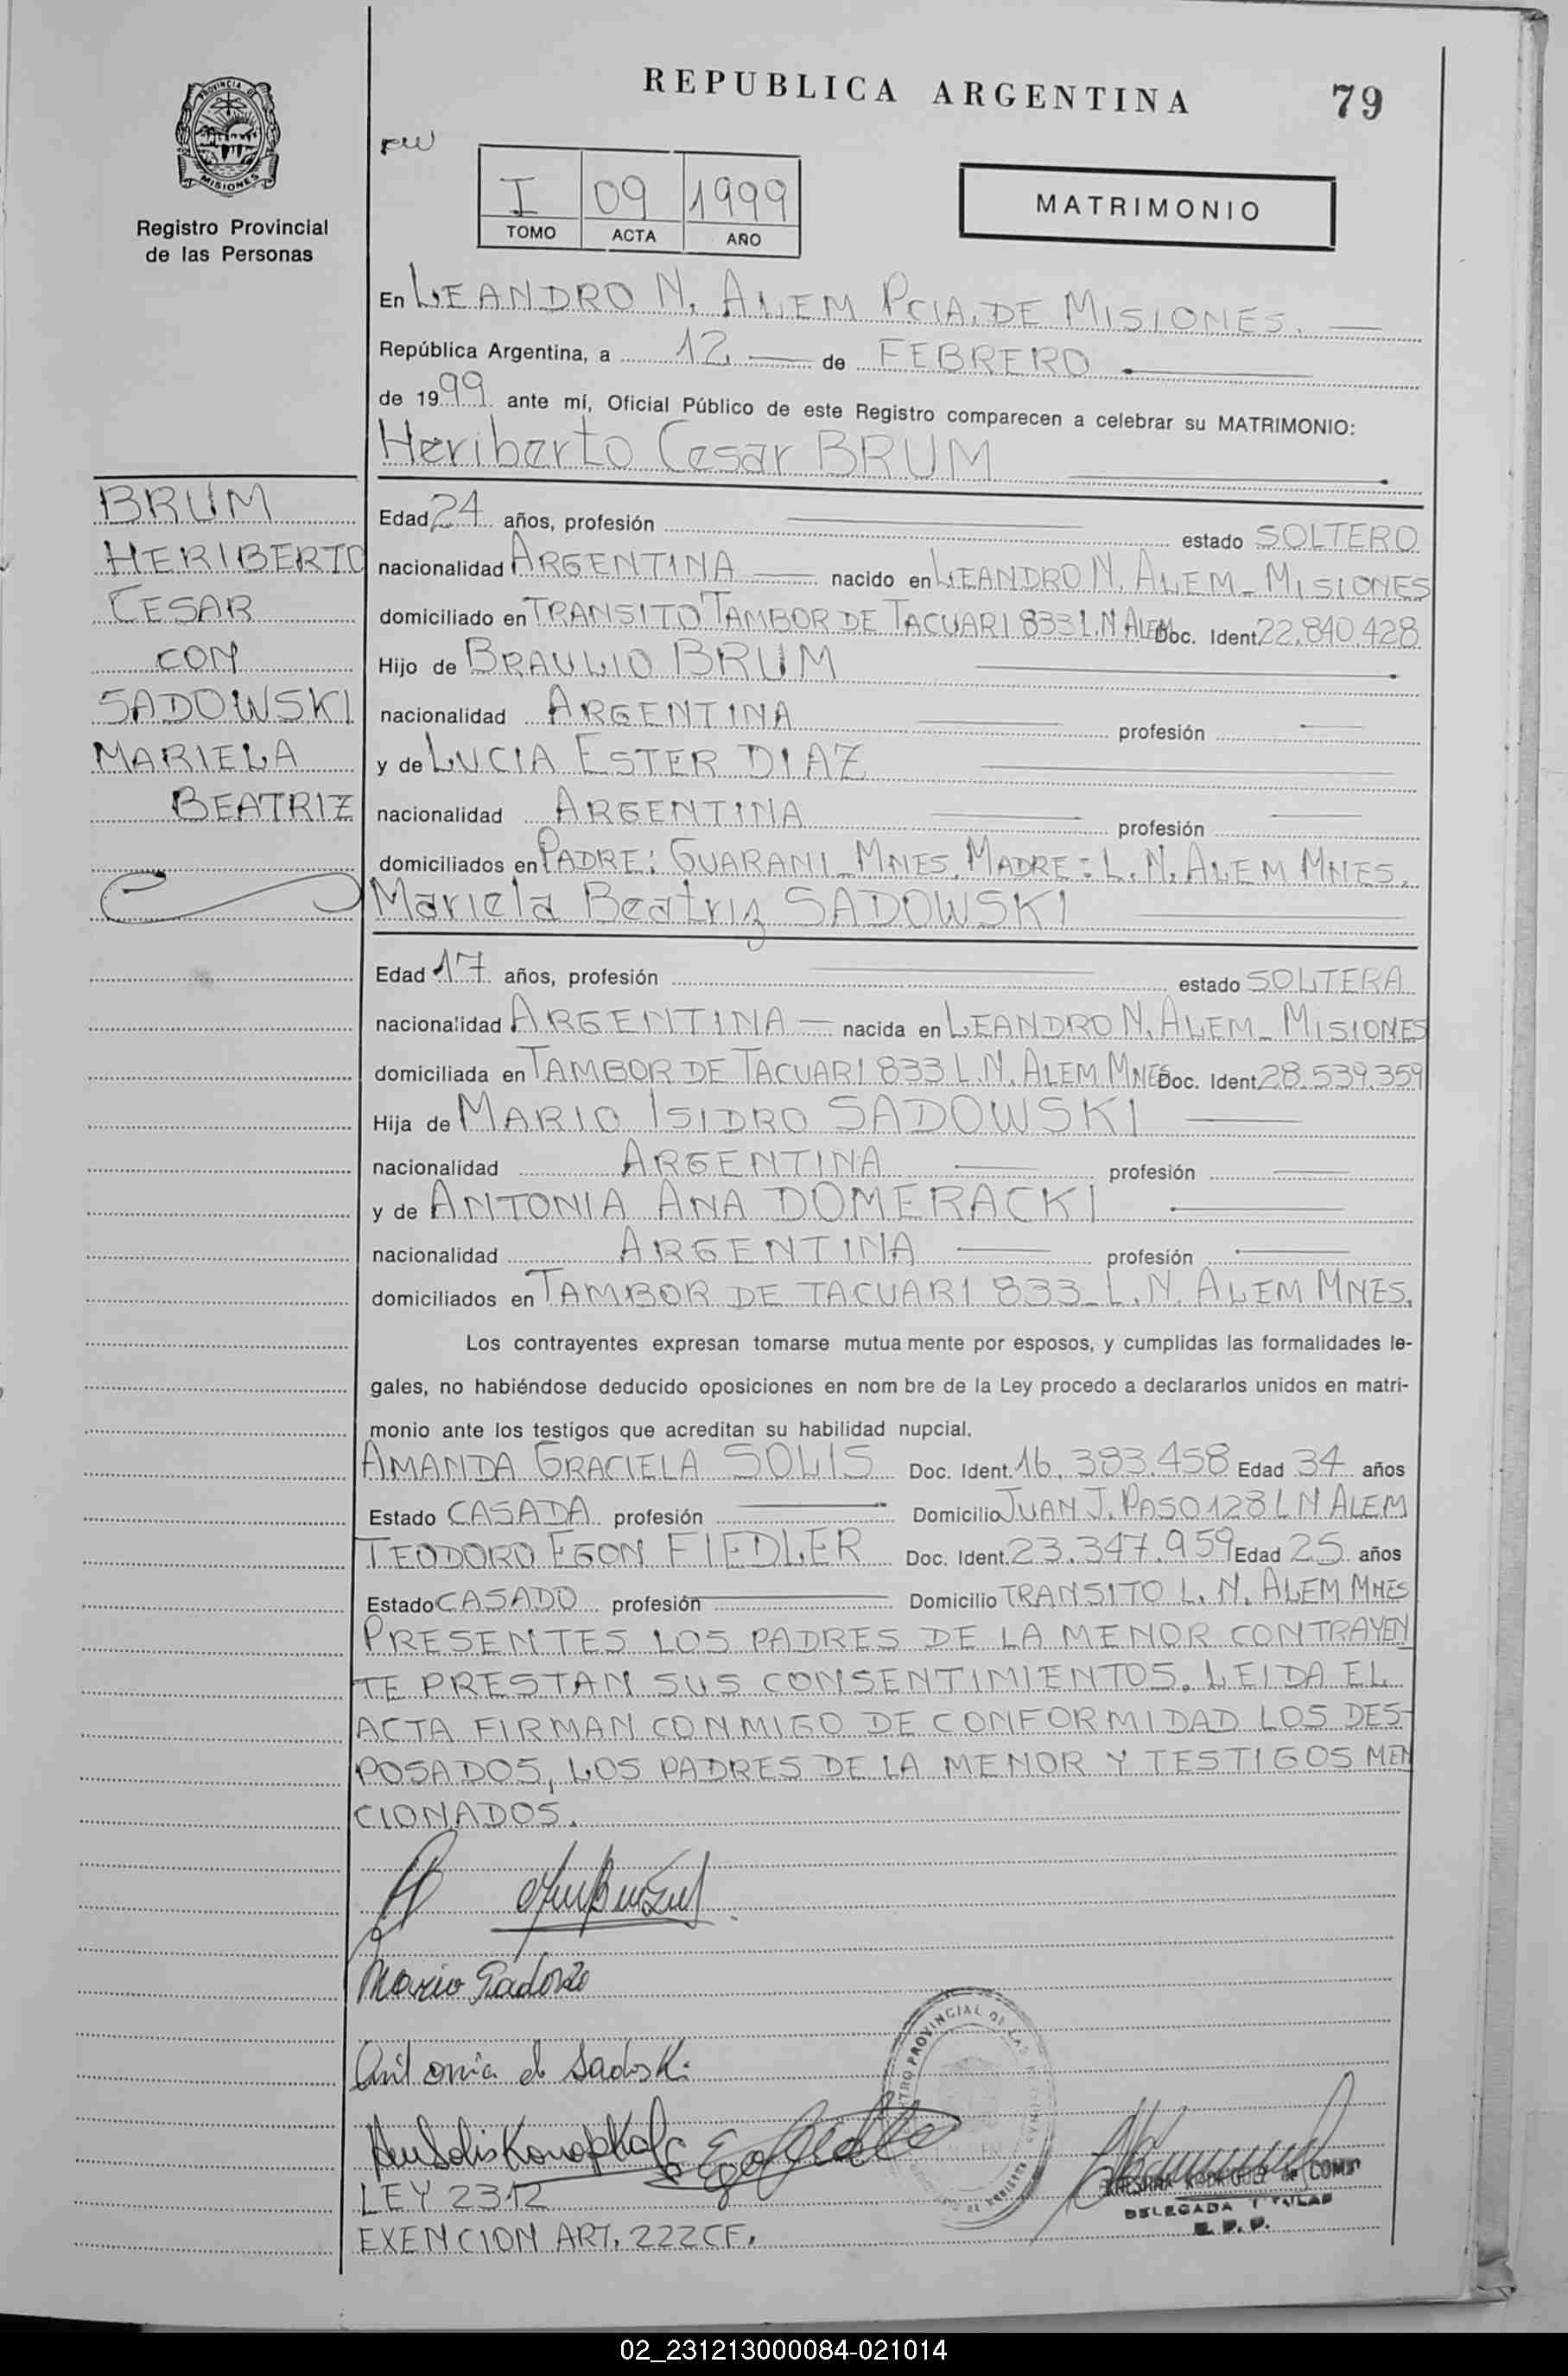 REPUBLICA ARGENTINA
79
PROVINCIA DE MISIONES
Registro Provincial
de las Personas
I 09 1999
TOMO ACTA AÑO
MATRIMONIO
En LEANDRO N. ALEM PCIA. DE MISIONES. —
República Argentina, a 12. — de FEBRERO
de 1999 ante mí, Oficial Público de este Registro comparecen a celebrar su MATRIMONIO:
Heriberto Cesar BRUM
BRUM
HERIBERTO
CESAR
CON
SADOWSKI
MARIELA
BEATRIZ
Edad 24 años, profesión estado SOLTERO
nacionalidad ARGENTINA — nacido en LEANDRO N. ALEM - MISIONES
domiciliado en TRANSITO TAMBOR DE TACUARI 833 L.N ALEM Doc. Ident. 22.840.428
Hijo de BRAULIO BRUM
nacionalidad ARGENTINA — profesión —
y de LUCIA ESTER DIAZ
nacionalidad ARGENTINA — profesión —
domiciliados en PADRE: GUARANI - MNES. MADRE: L.N. ALEM MNES.
Mariela Beatriz SADOWSKI
Edad 17 años, profesión estado SOLTERA
nacionalidad ARGENTINA — nacida en LEANDRO N. ALEM - MISIONES
domiciliada en TAMBOR DE TACUARI 833 L.N. ALEM MNES Doc. Ident. 28.539.359
Hija de MARIO ISIDRO SADOWSKI —
nacionalidad ARGENTINA — profesión —
y de ANTONIA ANA DOMERACKI —
nacionalidad ARGENTINA — profesión —
domiciliados en TAMBOR DE TACUARI 833 - L.N. ALEM MNES.
Los contrayentes expresan tomarse mutua mente por esposos, y cumplidas las formalidades le-
gales, no habiéndose deducido oposiciones en nom bre de la Ley procedo a declararlos unidos en matri-
monio ante los testigos que acreditan su habilidad nupcial.
AMANDA GRACIELA SOLIS Doc. Ident. 16.383.458 Edad 34 años
Estado CASADA profesión — Domicilio JUAN J. PASO 128 L N ALEM
TEODORO EGON FIEDLER Doc. Ident. 23.347.959 Edad 25 años
Estado CASADO profesión — Domicilio TRANSITO L. N. ALEM MNES
PRESENTES LOS PADRES DE LA MENOR CONTRAYEN
TE PRESTAN SUS CONSENTIMIENTOS. LEIDA EL
ACTA FIRMAN CONMIGO DE CONFORMIDAD LOS DES-
POSADOS, LOS PADRES DE LA MENOR Y TESTIGOS MEN
CIONADOS.
Mario
Antonia de Sadoski
LEY 2312
EXENCION ART. 222 CF.
DELEGADA TITULAR
02_231213000084-021014